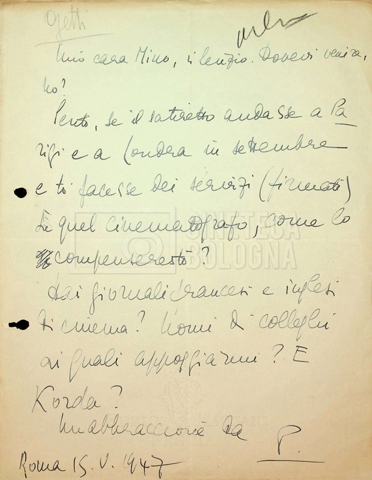 Ojetti
Mio caro Mino, silenzio. Dovevi venire,
no?
Senti, se il satiretto andasse a Pa-
rigi e a Londra in settembre
e ti facesse dei servizi (firmati)
su quel cinematografo, come lo
compenseresti?
Hai giornali francesi e inglesi
di cinema? Nomi di colleghi
ai quali appoggiarmi? E
Korda?
Un abbraccione da
P.
Roma 15.V.1947
CINETECA
BOLOGNA